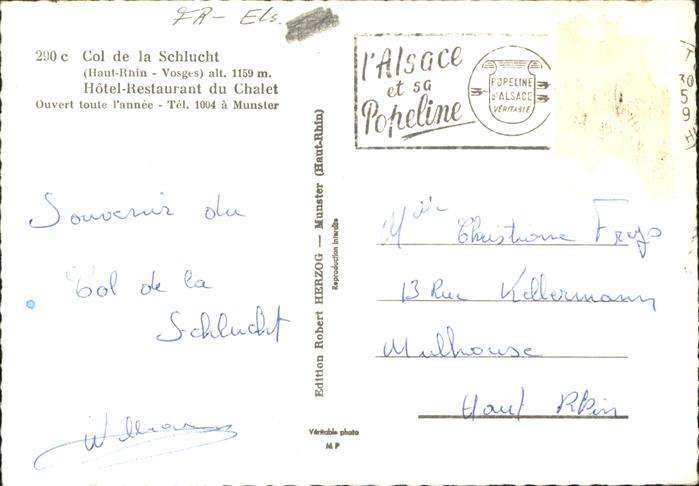 FR - Els.
290 c Col de la Schlucht
(Haut-Rhin - Vosges) alt. 1159 m.
Hôtel-Restaurant du Chalet
Ouvert toute l'année - Tél. 1004 à Munster
l'Alsace
et sa
Popeline
POPELINE
D'ALSACE
VÉRITABLE
Souvenir du
Col de la
Schlucht
William
Edition Robert HERZOG — Munster (Haut-Rhin)
Reproduction interdite
Véritable photo
M P
Christiane
13 Rue Kellermann
Mulhouse
Haut Rhin